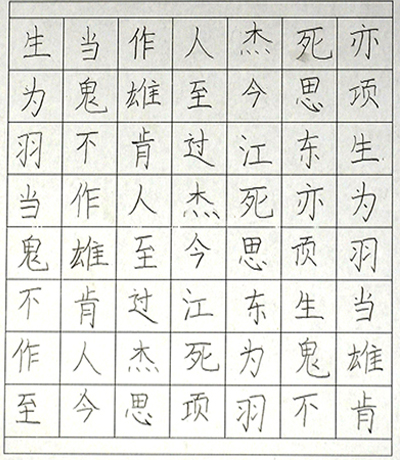 生当作人杰死亦
为鬼雄至今思项
羽不肯过江东生
当作人杰死亦为
鬼雄至今思项羽
不肯过江东生当
作人杰死为鬼雄
至今思项羽不肯